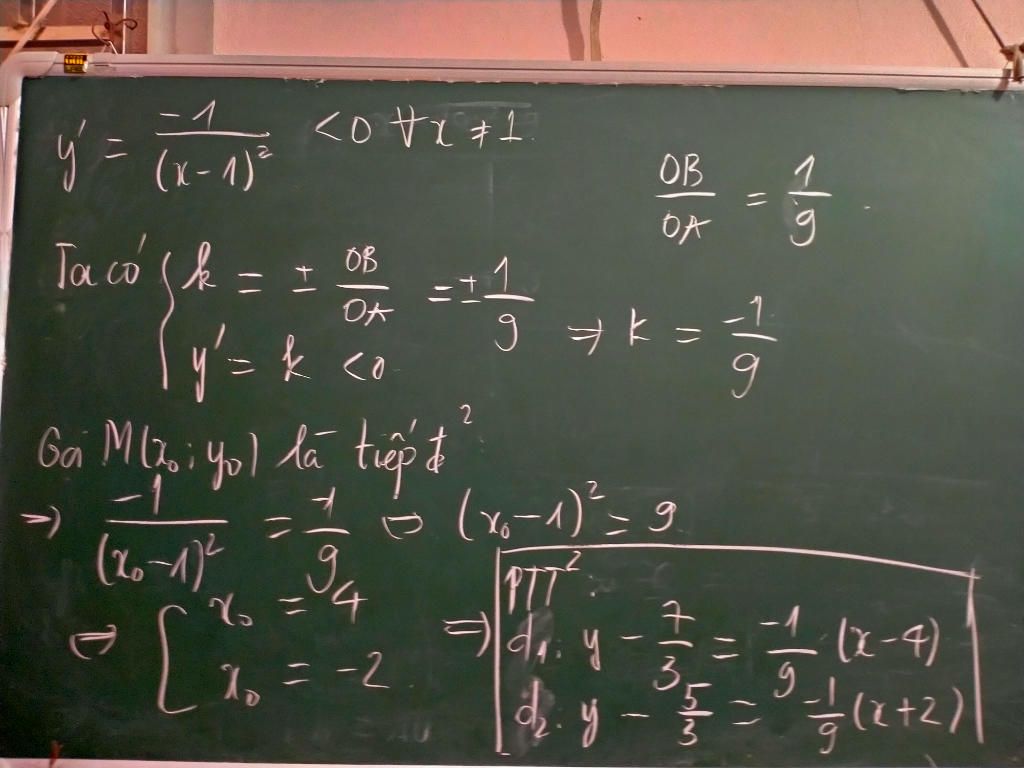 y' = -1/(x-1)² <0 ∀x ≠ 1
OB/OA = 1/9
Ta có { k = ± OB/OA = ± 1/9
y' = k <0 ⇒ k = -1/9
Gọi M(x₀; y₀) là tiếp đ²
⇒ -1/(x₀-1)² = -1/9 ⇔ (x₀-1)² = 9
⇔ [ x₀ = 4
x₀ = -2
⇒ PTT²:
d₁: y - 7/3 = -1/9 (x-4)
d₂: y - 5/3 = -1/9 (x+2)